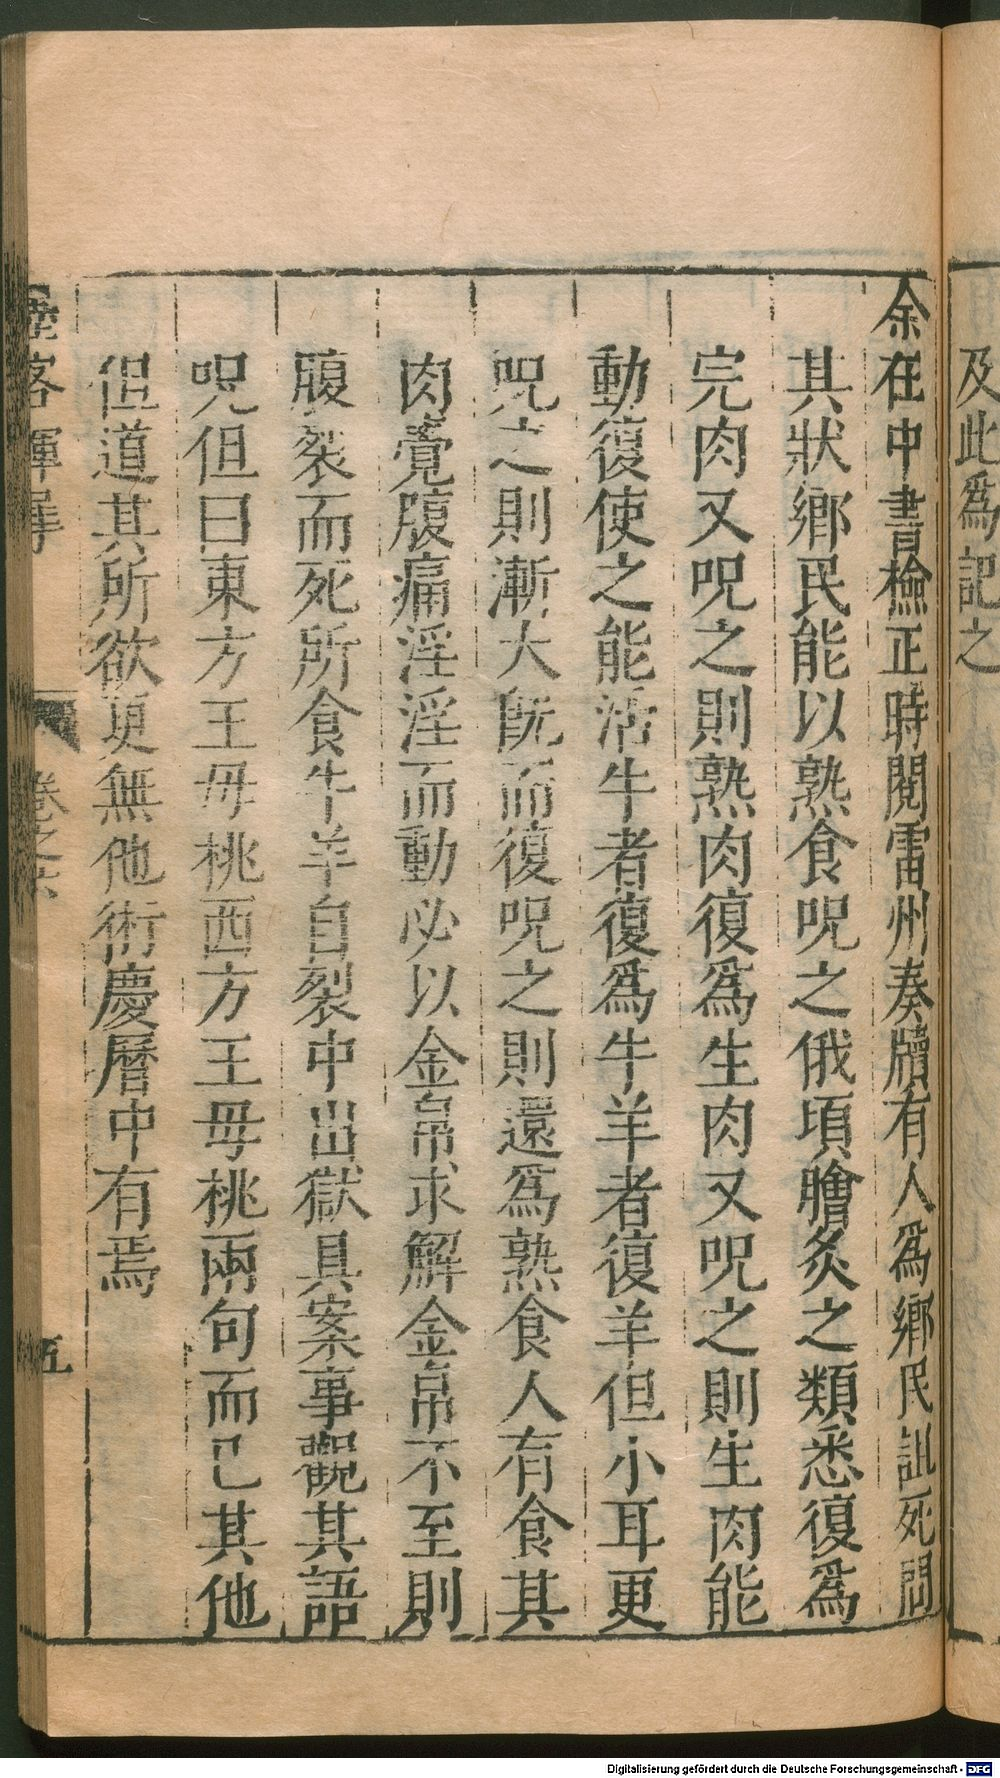 及此爲記之
余在中書檢正時閱雷州奏牘有人爲鄉民詛死問
其狀鄉民能以熟食呪之俄頃膾炙之類悉復爲
完肉又呪之則熟肉復爲生肉又呪之則生肉能
動復使之能活牛者復爲牛羊者復羊但小耳更
呪之則漸大旣而復呪之則還爲熟食人有食其
肉覺腹痛淫淫而動必以金帛求解金帛不至則
腹裂而死所食牛羊自裂中出獄具案事觀其語
呪但曰東方王母桃西方王母桃兩句而已其他
但道其所欲更無他術慶曆中有焉
客揮犀 卷之六 五
Digitalisierung gefördert durch die Deutsche Forschungsgemeinschaft - DFG